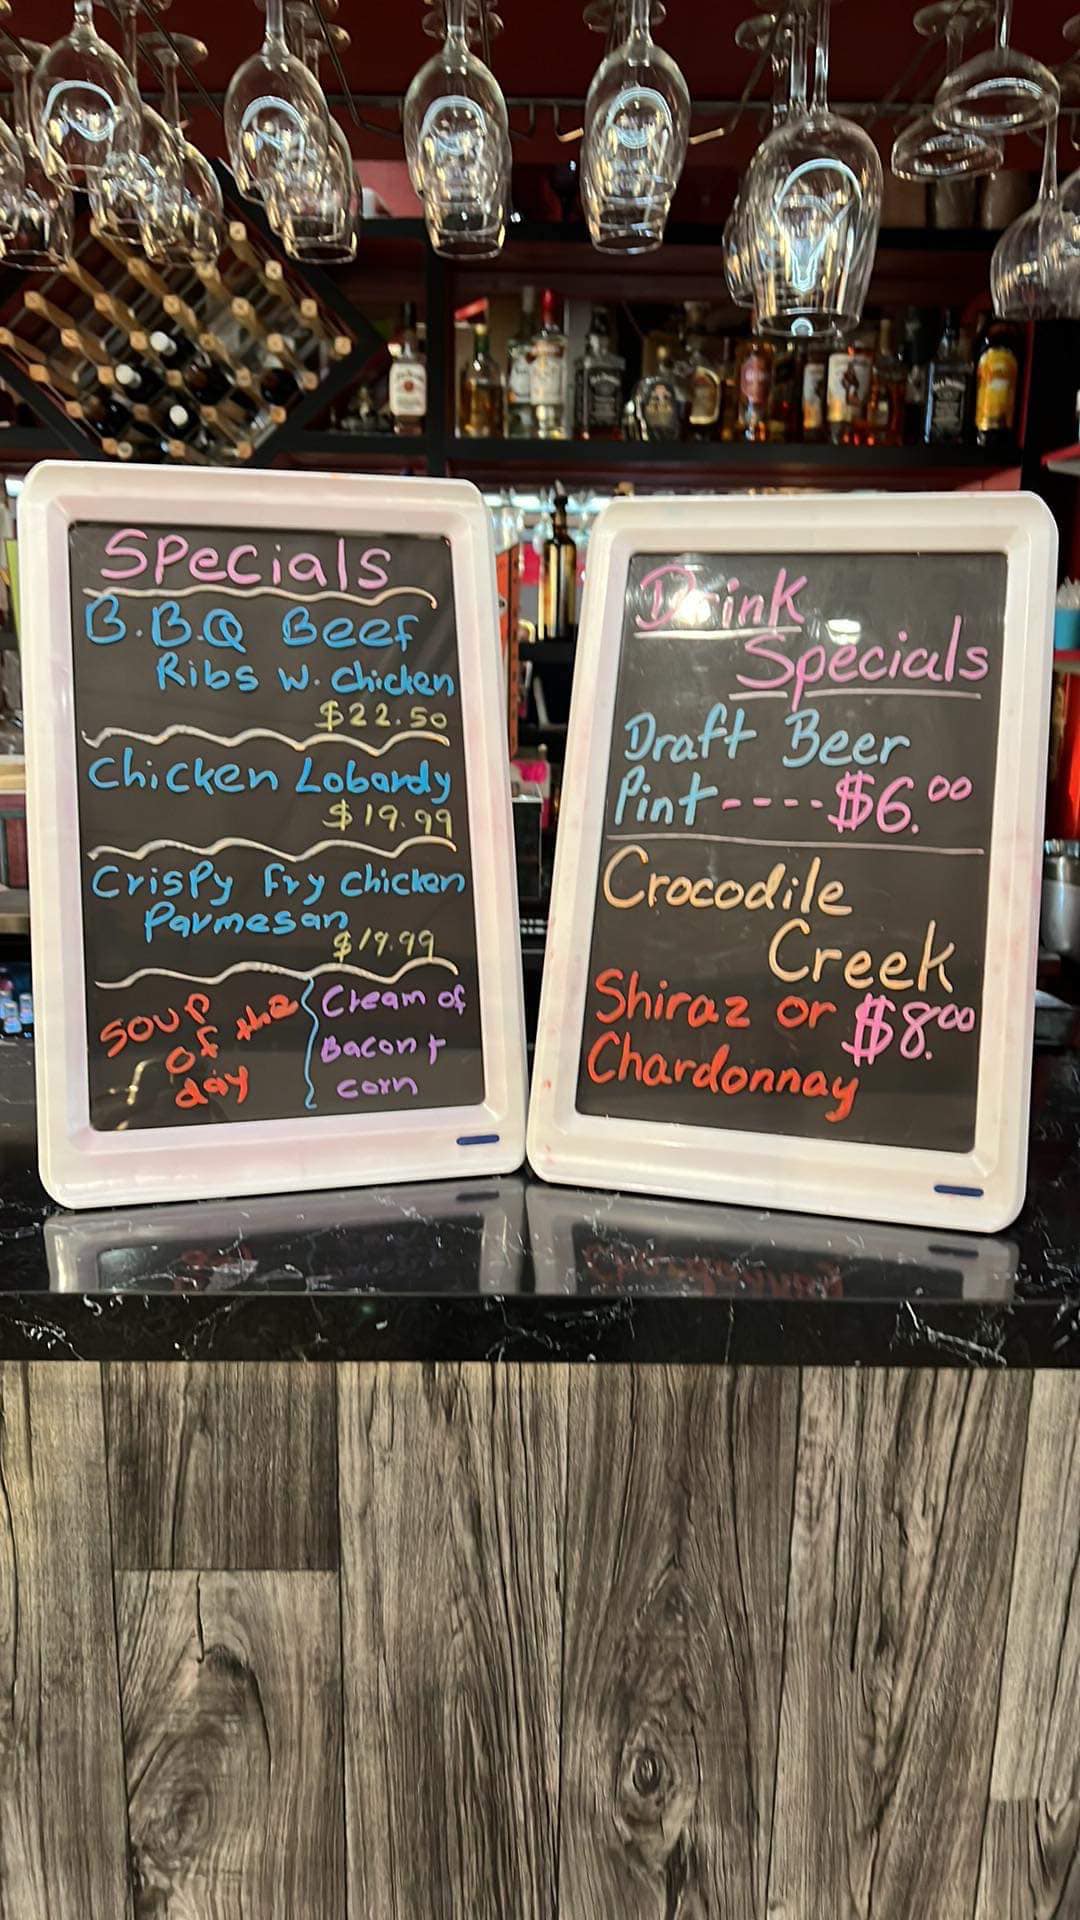 Specials
B.B.Q Beef
Ribs W. Chicken
$22.50
Chicken Lobardy
$19.99
Crispy Fry Chicken
Parmesan
$19.99
Soup
of the
day
Cream of
Bacon +
corn
Drink
Specials
Draft Beer
Pint----$6.00
Crocodile
Creek
Shiraz or $8.00
Chardonnay